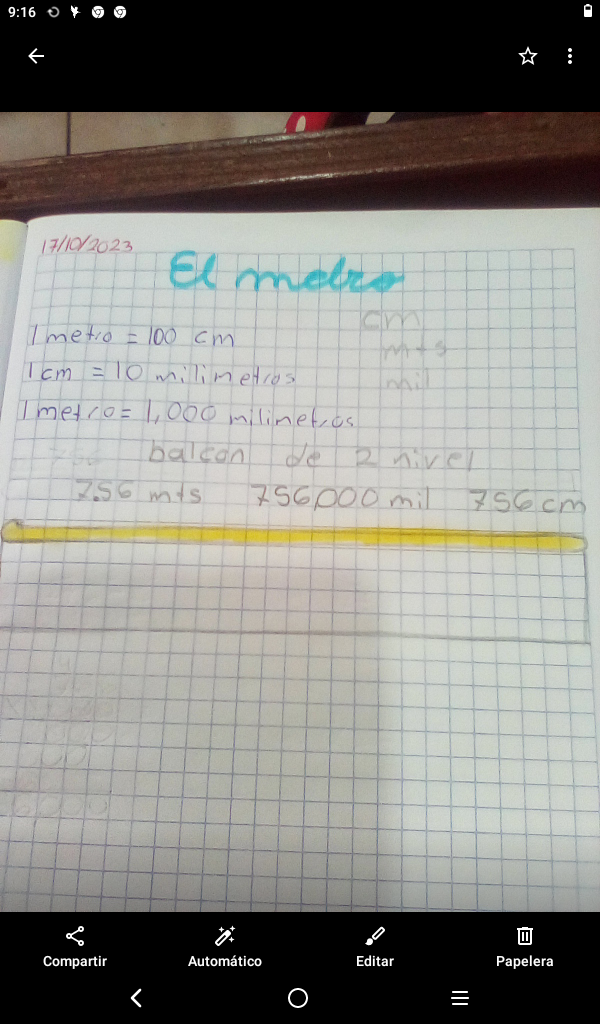 9:16
17/10/2023
El metro
cm
1 metro = 100 cm
mts
1 cm = 10 milimetros
mil
1 metro = 1,000 milimetros
balcon de 2 nivel
7.56 mts 756,000 mil 756 cm
Compartir Automático Editar Papelera